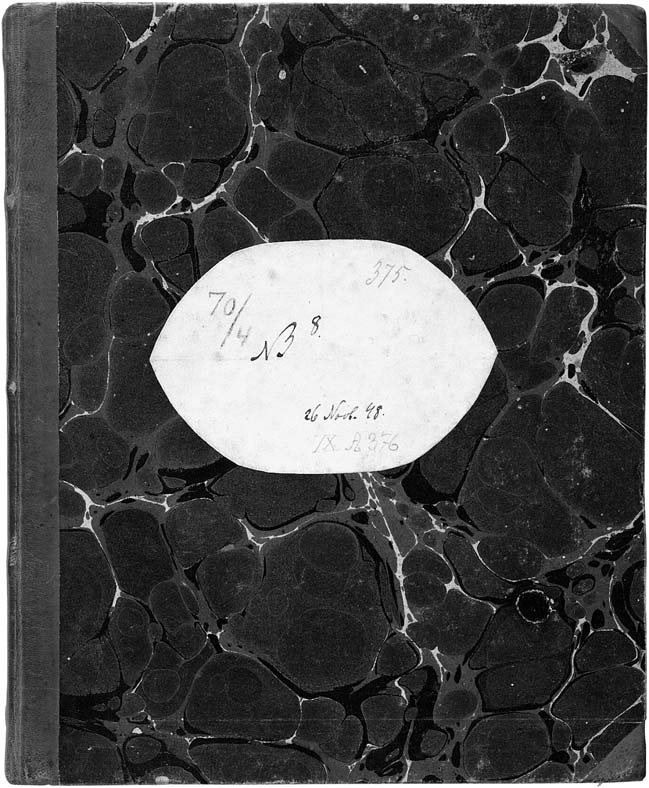 375.
70/4
NB 8.
26 Novb. 48.
IX A 376